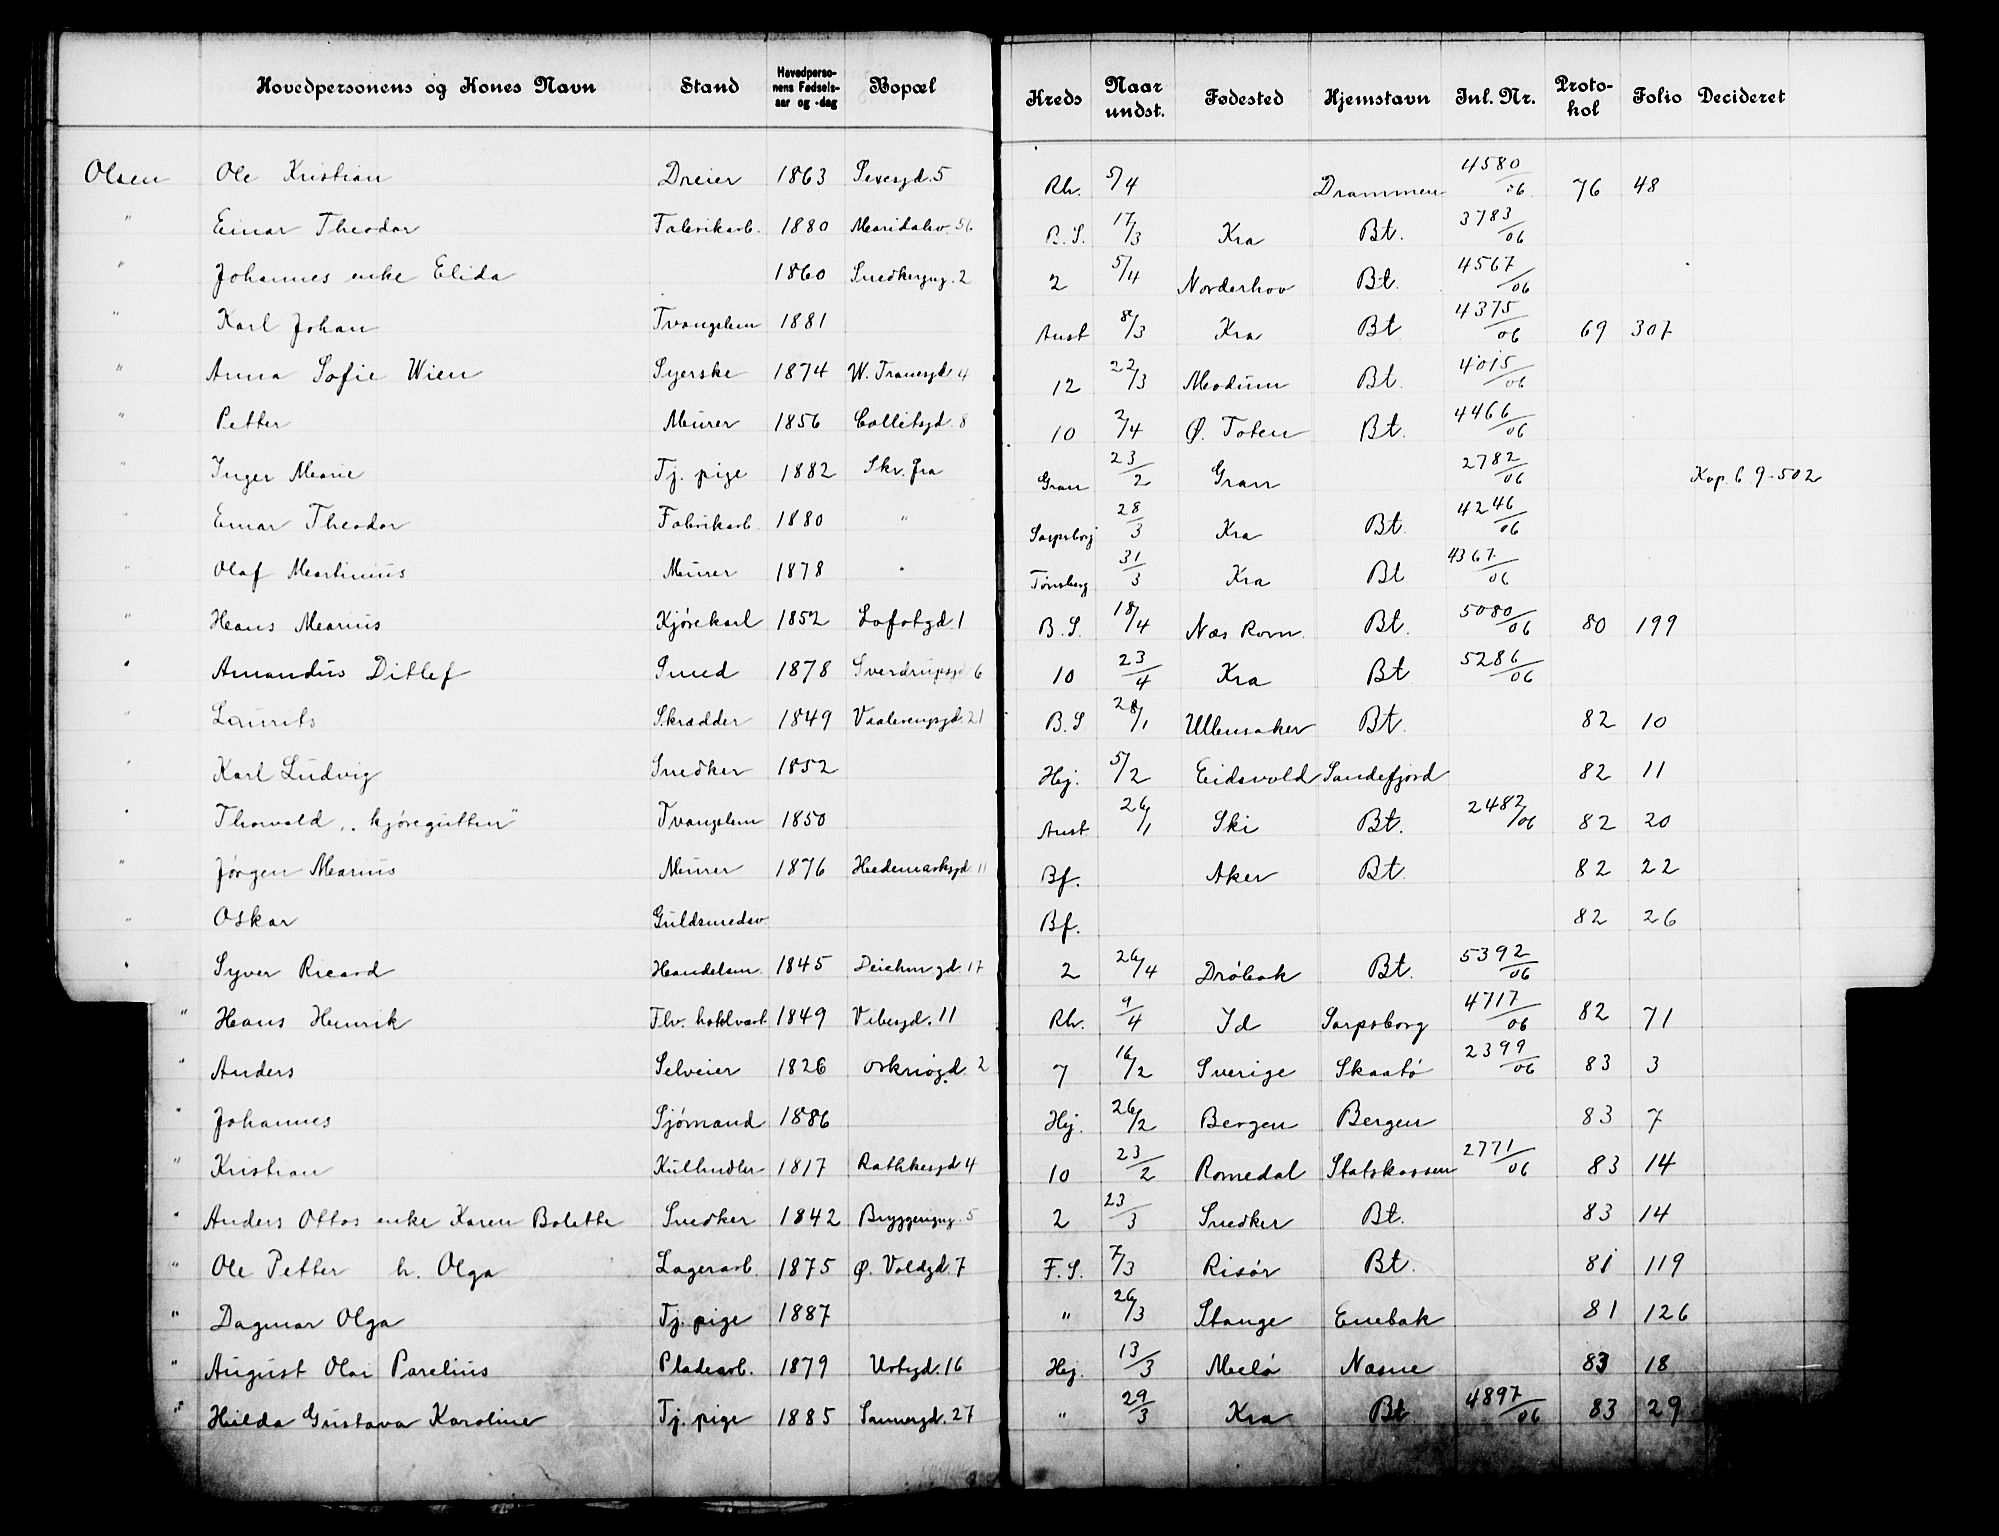 Hovedpersonens og Kones Navn Stand Hovedperso-nens Fødsels-aar og -dag Bopæl Kreds Naar undst. Fødested Hjemstavn Inl. Nr. Proto-kol Folio Decideret
Olsen Ole Kristian Dreier 1863 5 Rh. 5/4 Drammen 4580/06 76 48
" Einar Theodor Fabrikarb. 1880 Maridalsv. 56 B.S. 17/3 Kra Bt. 3783/06
" Johannes enke Elida 1860 Snedkergng. 2 2 5/4 Norderhov Bt. 4567/06
" Karl Johan Tvangslem 1881 Anst 8/3 Kra Bt. 4375/06 69 307
" Anna Sofie Wien Syerske 1874 W. Tranesgd 4 12 22/3 Modum Bt. 4015/06
" Petter Murer 1856 Colletsgd. 8 10 2/4 Ø. Toten Bt. 4466/06
" Inger Marie Tj. pige 1882 Skr. fra Gran 23/2 Gran 2782/06 Kop. b 9-502
" Einar Theodor Fabrikarb. 1880 " Sarpsborg 28/3 Kra Bt. 4246/06
" Olaf Martinius Murer 1878 " Tønsberg 31/3 Kra Bt 4367/06
" Hans Marius Kjørekarl 1852 Lofotgd. 1 B.S. 18/4 Næs Rom. Bt. 5080/06 80 199
" Amandus Ditlef Smed 1878 Sverdrupsgd 6 10 23/4 Kra Bt 5286/06
" Laurits Skrædder 1849 Vaalerengsgd. 21 B.S 28/1 Ullensaker Bt. 82 10
" Karl Ludvig Snedker 1852 Hej. 5/2 Eidsvold Sandefjord 82 11
" Thorvald ,, kjøregutten" Tvangslem 1850 Anst 26/1 Ski Bt. 2482/06 82 20
" Jørgen Marius Murer 1876 Hedemarksgd 11 Bf. Aker Bt. 82 22
" Oskar Guldsmedsv Bf. 82 26
" Syver Ricard Handelsm. 1845 Deichm gd. 17 2 26/4 Drøbak Bt. 5392/06
" Hans Henrik Flv. 1849 Vibesgd. 11 Rh. 9/4 Id Sarpsborg 4717/06 82 71
" Anders Selveier 1826 2 7 16/2 Sverige Skaatø 2399/06 83 3
" Johannes Sjømand 1886 Hej. 26/2 Bergen Bergen 83 7
" Kristian Kulhndler 1817 Rathkesgd 4 10 23/2 Romedal Statskassen 2771/06 83 14
" Anders Ottos enke Karen Bolette Snedker 1842 Bryggerigng. 5 2 23/3 Snedker Bt. 83 14
" Ole Petter h. Olga Lagerarb. 1875 Ø. Voldgd. 7 F.S. 7/3 Risør Bt. 81 119
" Dagmar Olga Tj. pige 1887 " 26/3 Stange Enebak 81 126
" August Olai Parelius Pladearb. 1879 Urtegd. 16 Hej. 13/3 Melø Næsne 83 18
" Hilda Gustava Karoline Tj. pige 1885 Sannergd. 27 " 29/3 Kra Bt 4897/06 83 29